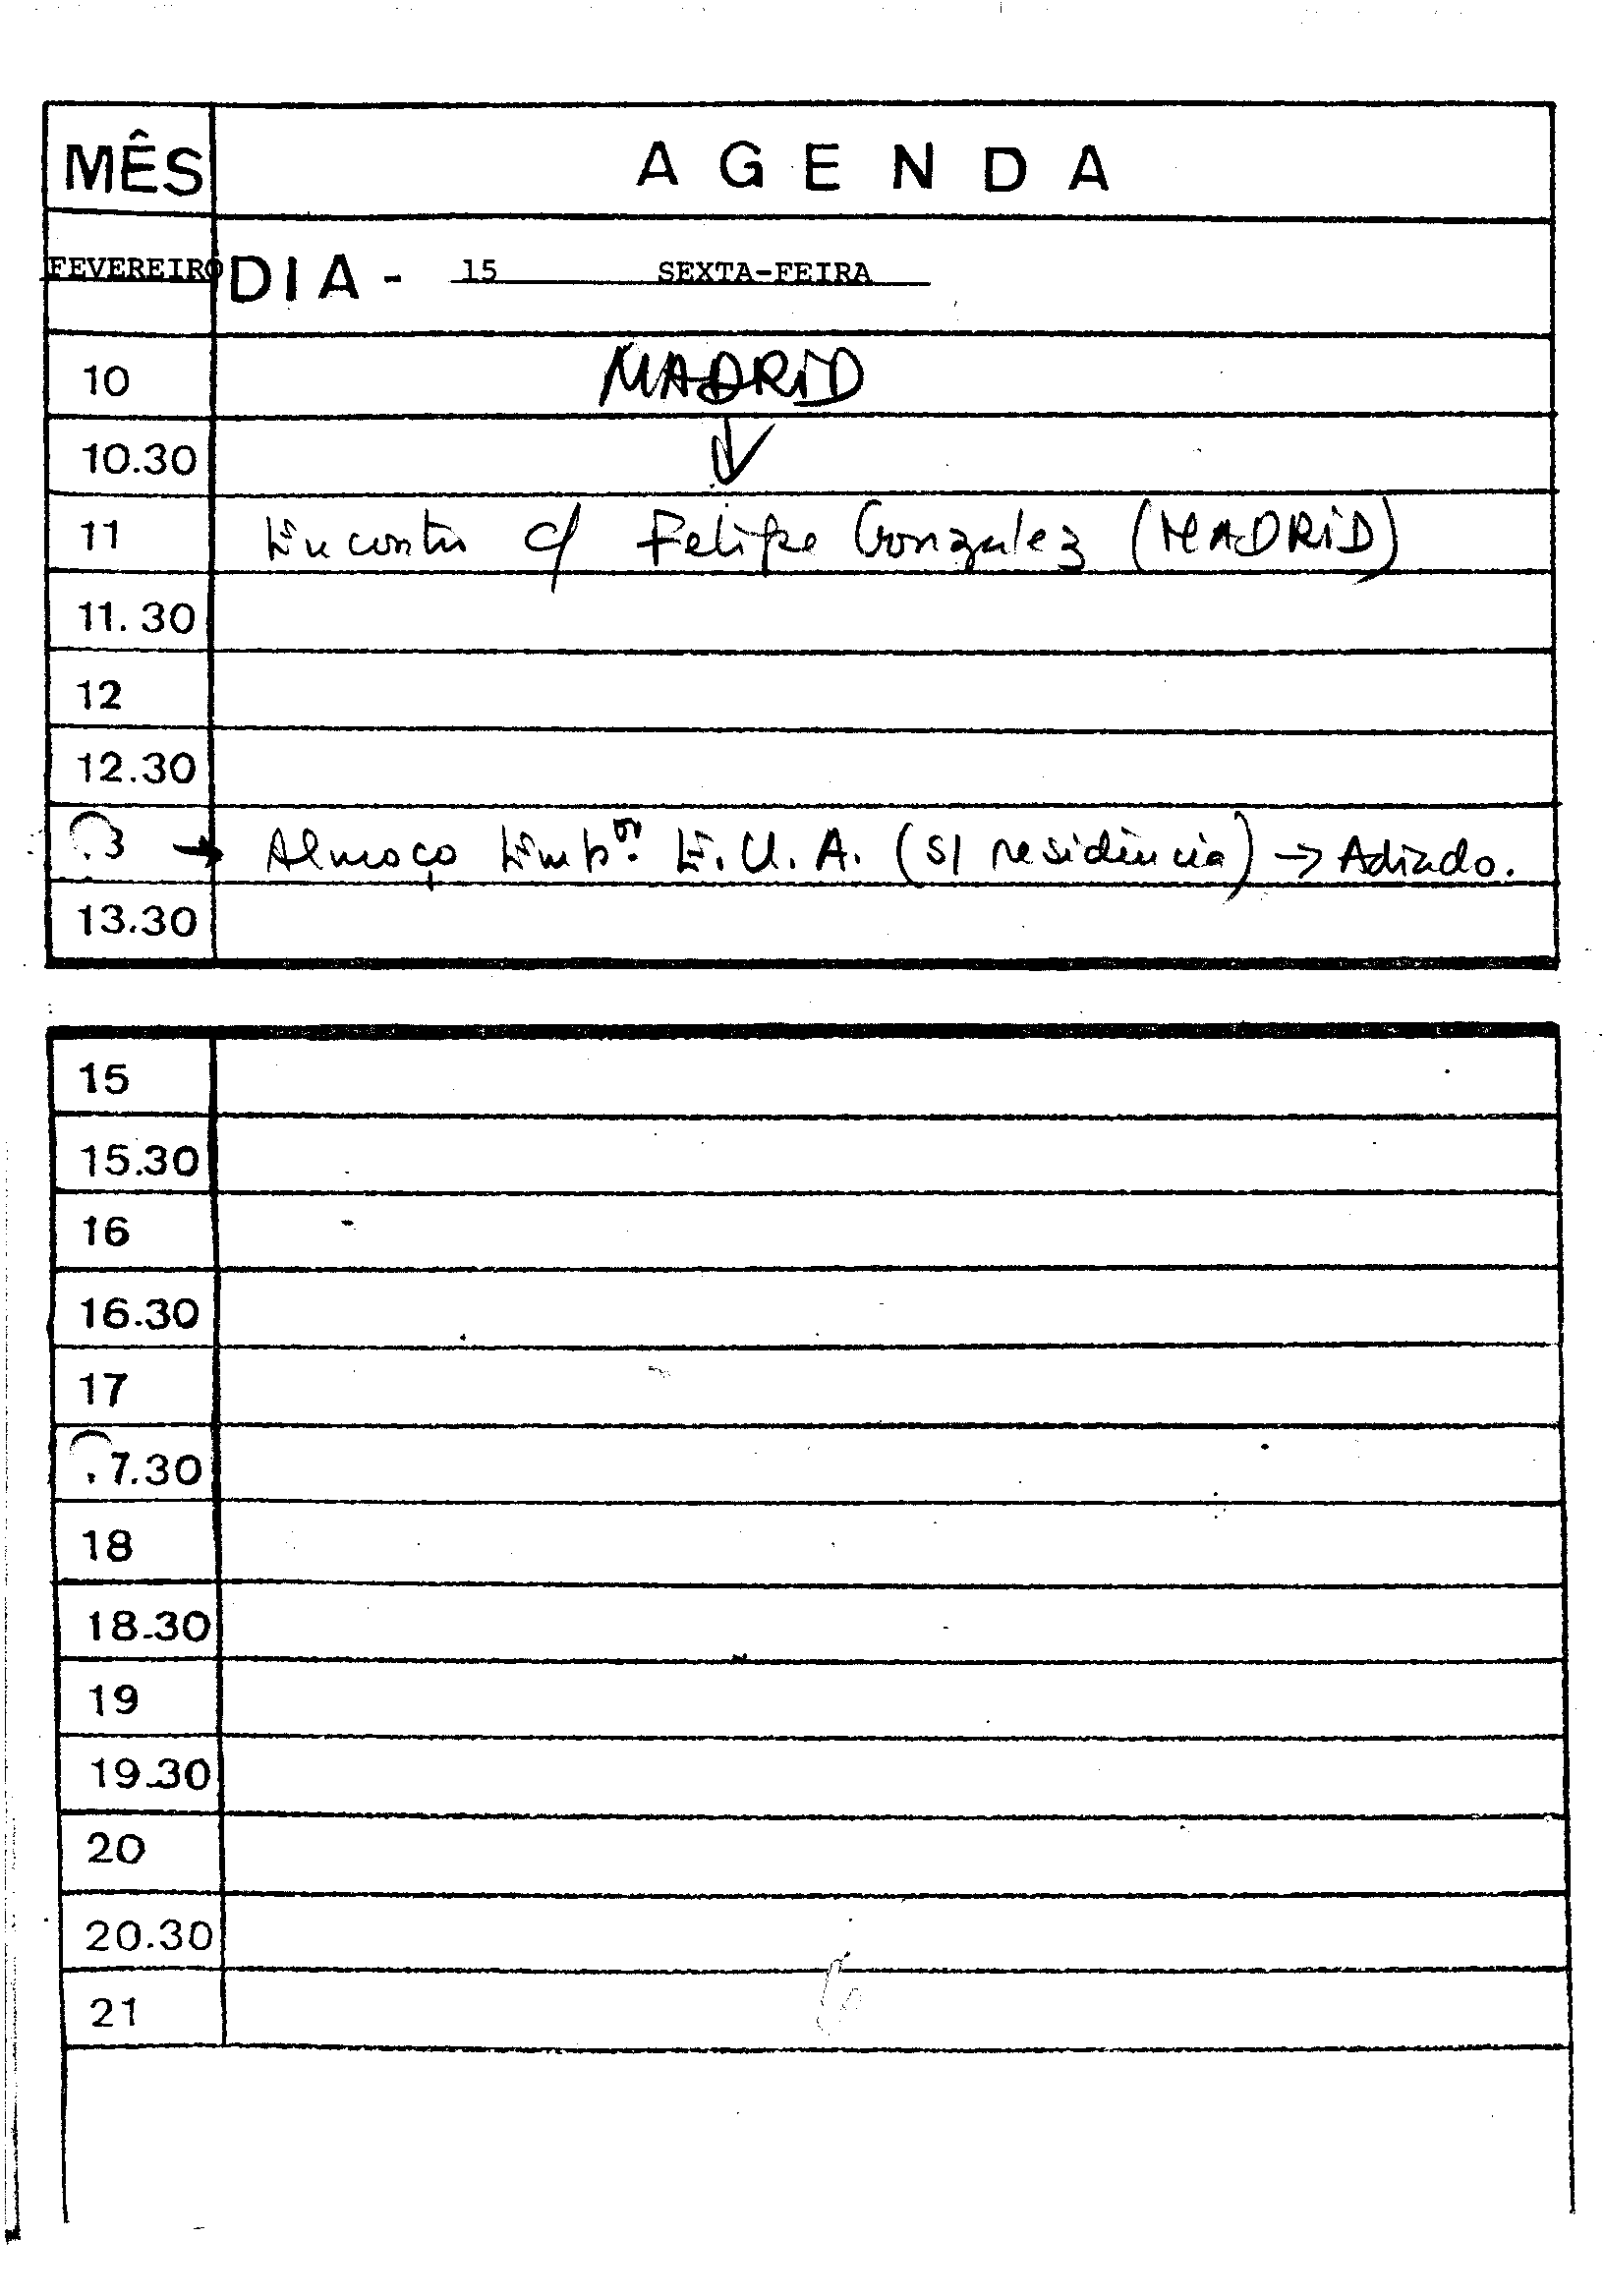 MÊS AGENDA
FEVEREIRO DIA - 15 SEXTA-FEIRA
10 MADRID
10.30
11 Encontro c/ Felipe Gonzalez (MADRID)
11.30
12
12.30
13 → Almoço Emb.or E.U.A. (s/ residência) → Adiado.
13.30
15
15.30
16
16.30
17
17.30
18
18.30
19
19.30
20
20.30
21